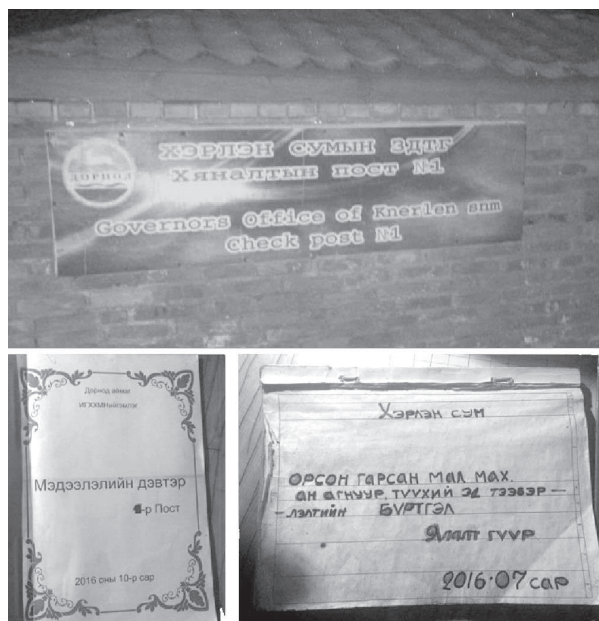 ДОРНОД
ХЭРЛЭН СУМЫН ЗДТГ
Хяналтын пост №1
Governors Office of Knerlen snm
Check post №1
Дорнод аймаг
Мэдээлэлийн дэвтэр
1-р Пост
2016 оны 10-р сар
Хэрлэн сум
ОРСОН ГАРСАН МАЛ МАХ.
АН АГНУУР, ТҮҮХИЙ ЭД ТЭЭВЭР –
– ЛЭЛТИЙН БҮРТГЭЛ
Ялалт гүүр
2016.07 сар